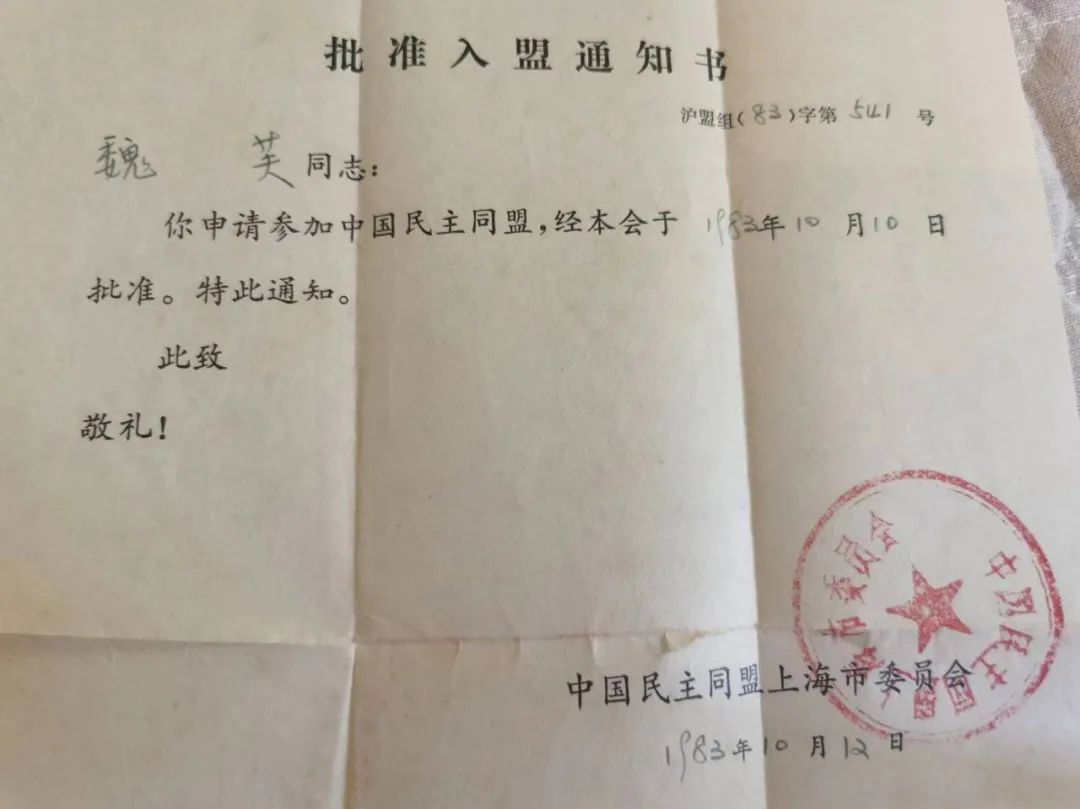 批准入盟通知书
沪盟组(83)字第541号
魏芙同志：
你申请参加中国民主同盟，经本会于1983年10月10日
批准。特此通知。
此致
敬礼！
中国民主同盟上海市委员会
中国民主同盟上海市委员会
1983年10月12日